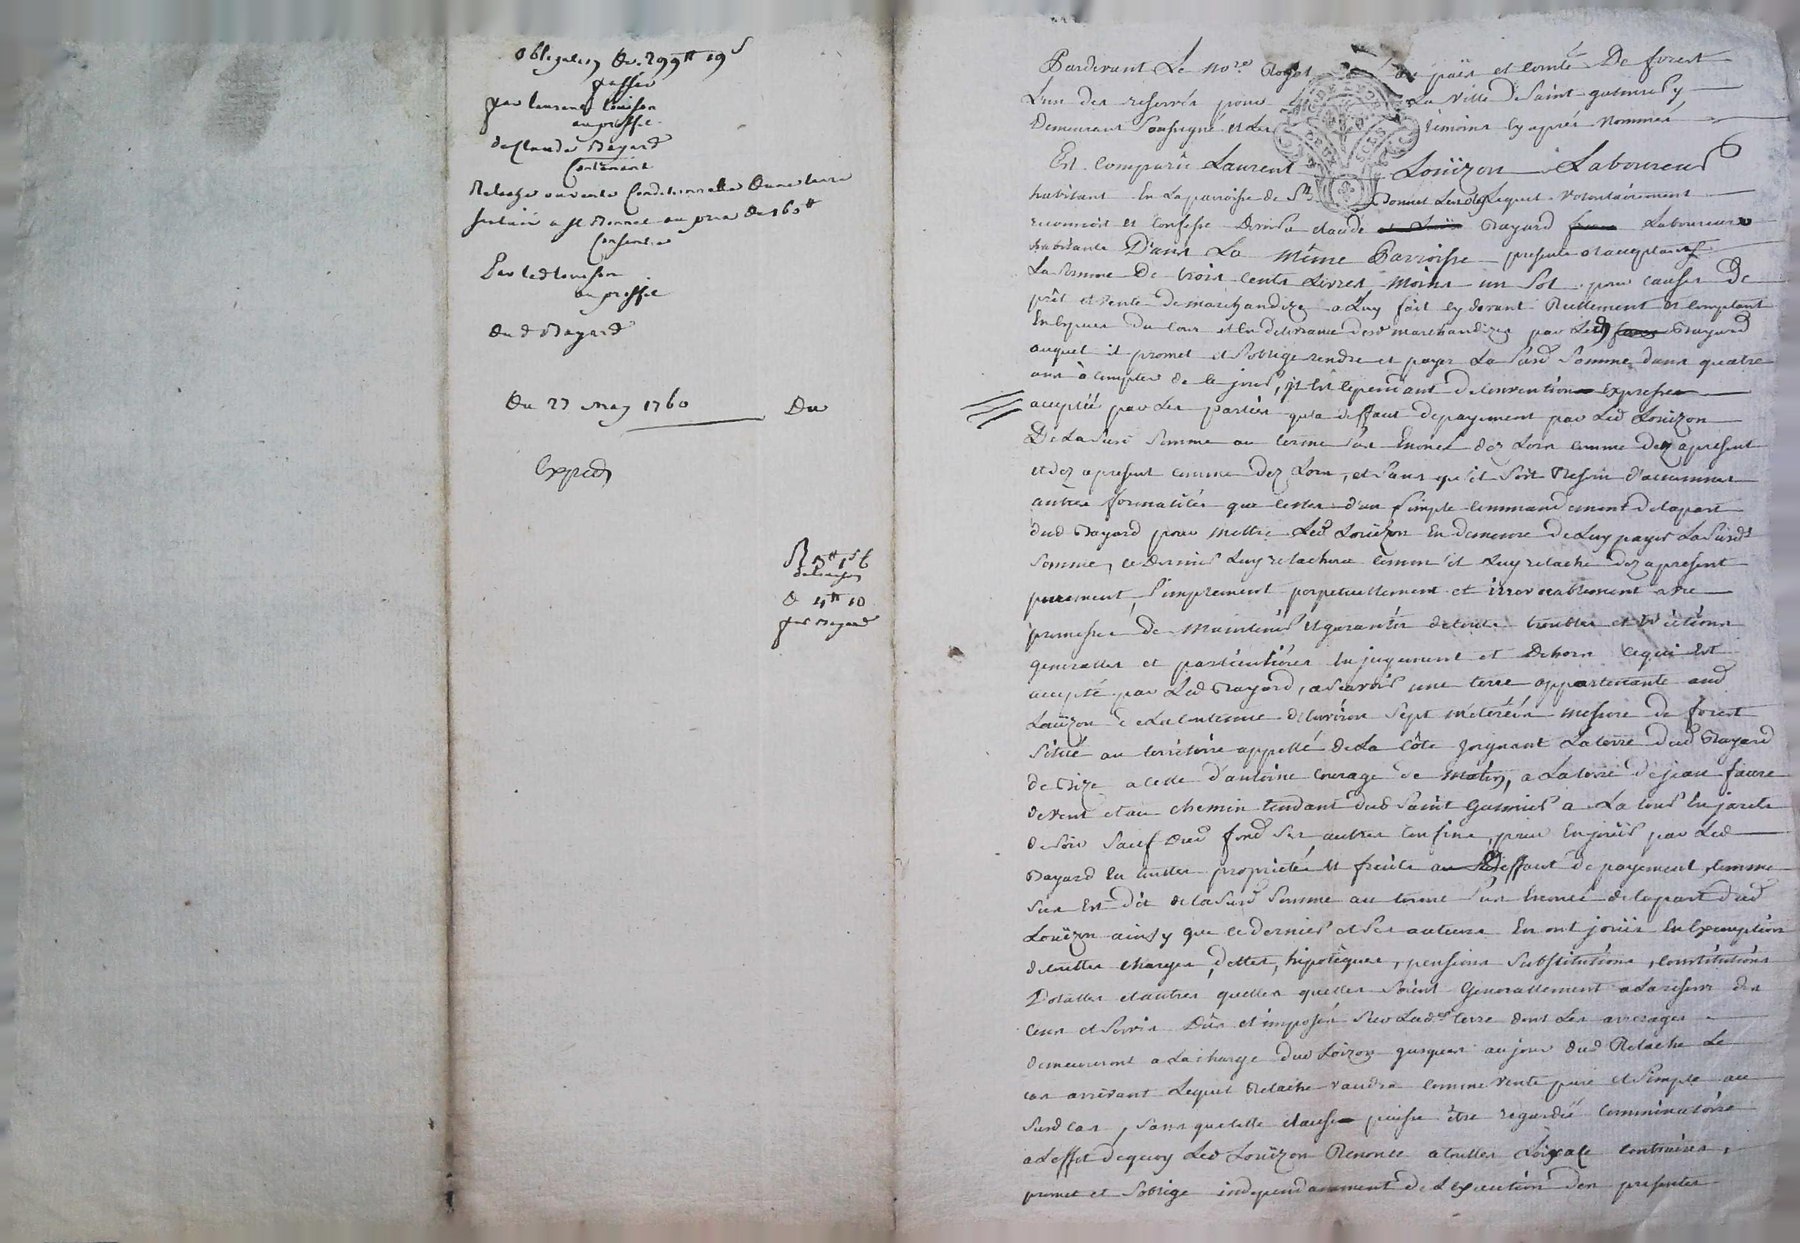 obligation De 299ᵗᵗ 19ˢ
passée
par laurent louison
au proffit
de Claude Bayard
Contenant
Relache ou vente Conditionnelle Dune terre
scituée a St Bonnet au prix de 160ᵗᵗ
Consentie
Par led louison
au proffit
dud Bayard
Du 27 may 1760
Du
Expedy
d 4ᵗᵗ 10
par Bayard
Pardevant Le no.re Royal au païs et Comté De forest
L'un des reservés pour La Ville de Saint galmier y
Demeurant Soussigné et Les témoins cy après Nommés
Est Comparû Laurent Loüizon Laboureur
habitant En La parroisse de St Bonnet Lequel Volontairement
reconnoit et Confesse Devoir a claude Bayard Laboureur
habitant Dans La même Parroisse present et acceptant
La Somme De trois Cents Livres moins un Sol pour Causes De
prêt et vente de marchandizes a Luy fait cy devant Reellement et Comptant
En especes du Cour et En delivrance desd marchandizes par Led Bayard
auquel il promet et S'oblige rendre et payer La Susd Somme dans quatre
ans à compter de Ce jour, Il Est Cependant de Convention Expresse
acceptée par Les parties qu'a deffaut de payement par Led Loüizon
De La Susd Somme au terme Sus Enoncé dez Lors comme dez apresent
et dez apresent comme dez Lors, et Sans qu'il Soit Besoin d'aucunnes
autres formalités que Celles d'un Simple Commandement de la part
dud Bayard pour mettre Led Loüizon En demeure de Luy payer La Susd
Somme, ce Dernier Luy relachera comme il Luy relache dez apresent
purement, Simplement perpetuellement et irrevocablement avec
promesse de Maintenir Et garantir de tous troubles et Evictions
generalles et particulières En jugement et Dehors Ce qui Est
accepté par Led Bayard, a Scavoir une terre appartenante aud
Loüizon de La Contenue d'Environ Sept meterées mesure de forest
Scituée au territoire appellé De La Côte joignant La terre dud Bayard
de Bize a celle d'antoine Courage de Matin, a La terre de jean faure
de vent et au chemin tendant dud Saint Galmier a La tour En jarets
de Soir Sauf dud fond Ses autres Confins, pour En jouir par Led
Bayard En toutte proprieté Et fruits au deffaut de payement, comme
Sus Est Dit de la Susd Somme au terme Sus Enoncé de la part dud
Loüizon ainsy que ce dernier et Ses auteurs En ont jouis En Exemption
de touttes charges, dettes, hipotèques, pensions Substitutions, Constitutions
Dotalles et autres quelles quelles Soient Generallement a La reserve des
Cens et Servis Dûs et imposés Sur Lad terre dont Les arrerages
demeureront a La charge dud Loizon jusques au jour dud Relache Le
cas arrivant Lequel Relache vaudra comme vente pure et Simple au
Susd cas, Sans que telle clause puisse être regardée Comminatoire
a L'effet de quoy Led Loüizon Renonce a touttes Loix a ce Contraires,
promet et S'oblige independamment de L'execution des presentes